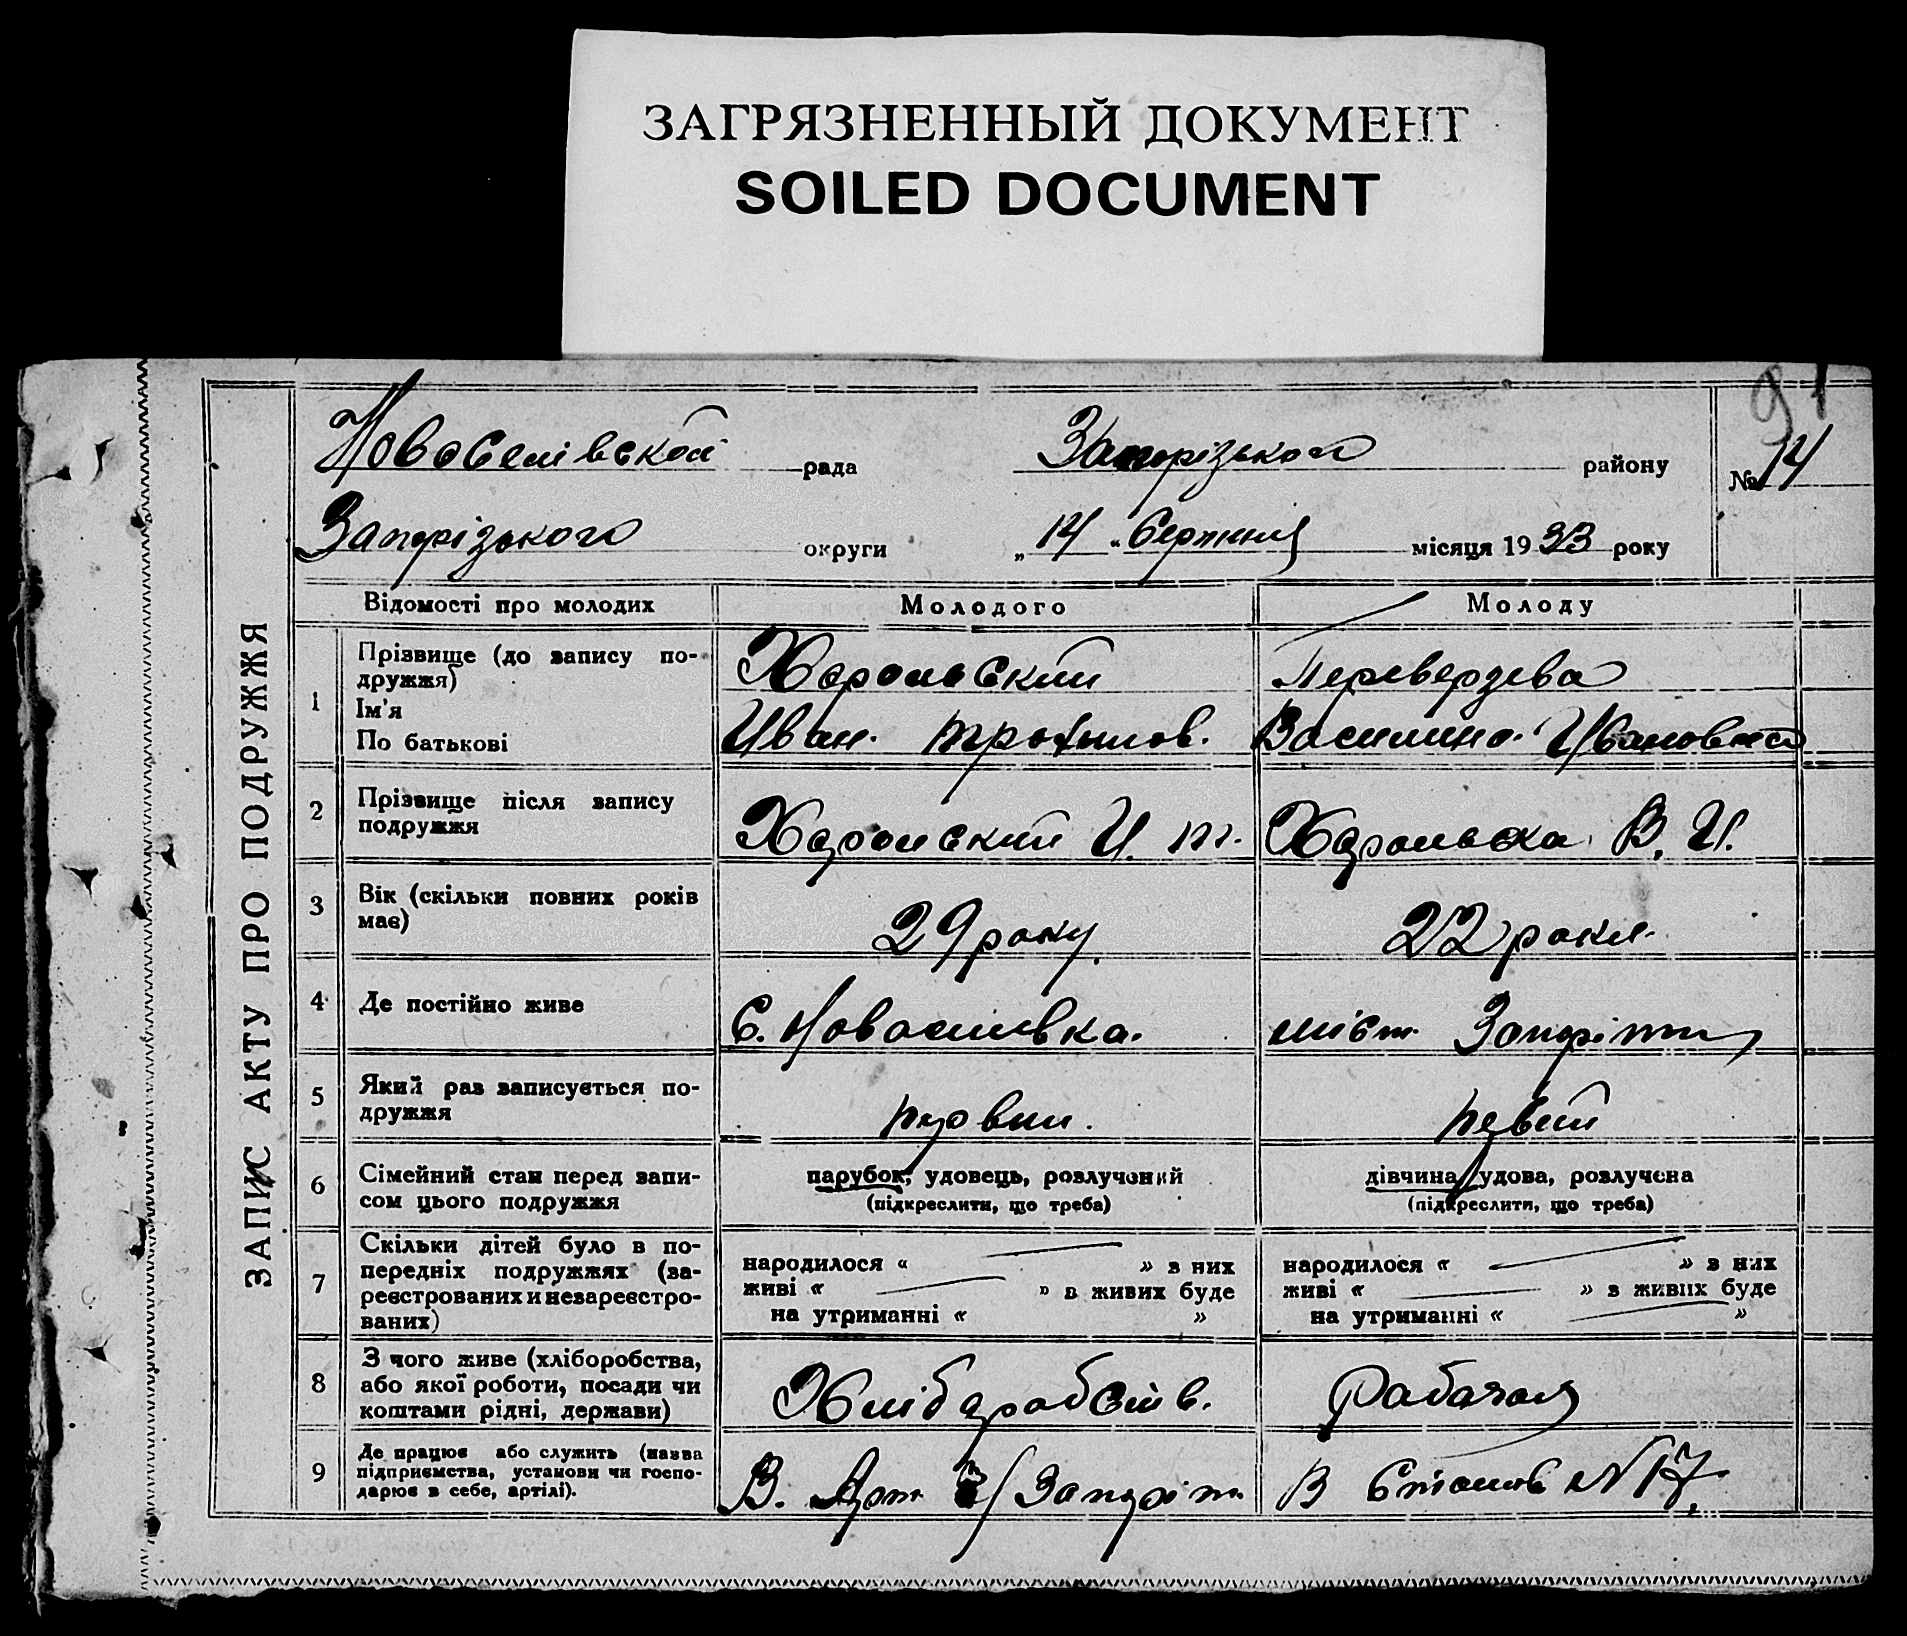 ЗАГРЯЗНЕННЫЙ ДОКУМЕНТ
SOILED DOCUMENT
91
Новоселівской рада Запорізького району № 14
Запорізького округи „ 14 “ Серпння місяця 1933 року
ЗАПИС АКТУ ПРО ПОДРУЖЖЯ
Відомості про молодих Молодого Молоду
1 Прізвище (до запису по-
дружжя)
Ім'я
По батькові
Хорольский
Иван. Трохимов.
Переверзева
Василина. Ивановна
2 Прізвище після запису
подружжя
Хорольский И. Т.
Хорольска В. И.
3 Вік (скільки повних років
має)
29 року.
22 роки.
4 Де постійно живе
С. Новоселивка.
міст Запоріжжя
5 Який раз записується по-
дружжя
первий
первий
6 Сімейний стан перед запи-
сом цього подружжя
парубок, удовець, розлучений
(підкреслити, що треба)
дівчина, удова, розлучена
(підкреслити, що треба)
7 Скільки дітей було в по-
передніх подружжях (за-
реєстрованих и незареєстро-
ваних)
народилося « » з них
живі « » з живих буде
на утриманні « »
народилося « » з них
живі « » з живих буде
на утриманні « »
8 З чого живе (хліборобства,
або якої роботи, посади чи
коштами рідні, держави)
Хлібороб
Рабочая
9 Де працює або служить (назва
підприємства, установи чи госпо-
дарює в себе, артілі).
В. Арт
В №17.